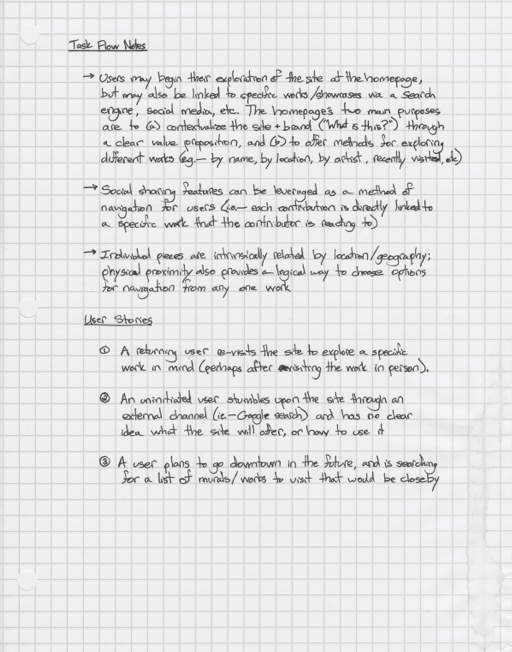 Task Flow Notes
→ Users may begin their exploration of the site at the homepage,
but may also be linked to specific works/showcases via a search
engine, social media, etc. The homepage's two main purposes
are to (a) contextualize the site + brand ("What is this?") through
a clear value proposition, and (b) to offer methods for exploring
different works (eg.— by name, by location, by artist, recently visited, etc)
→ Social sharing features can be leveraged as a method of
navigation for users (ie— each contribution is directly linked to
a specific work that the contributor is reacting to)
→ Individual pieces are intrinsically related by location/geography;
physical proximity also provides a logical way to choose options
for navigation from any one work
User Stories
① A returning user re-visits the site to explore a specific
work in mind (perhaps after revisiting the work in person).
② An uninitiated user stumbles upon the site through an
external channel (ie— Google search) and has no clear
idea what the site will offer, or how to use it
③ A user plans to go downtown in the future, and is searching
for a list of murals/works to visit that would be closeby